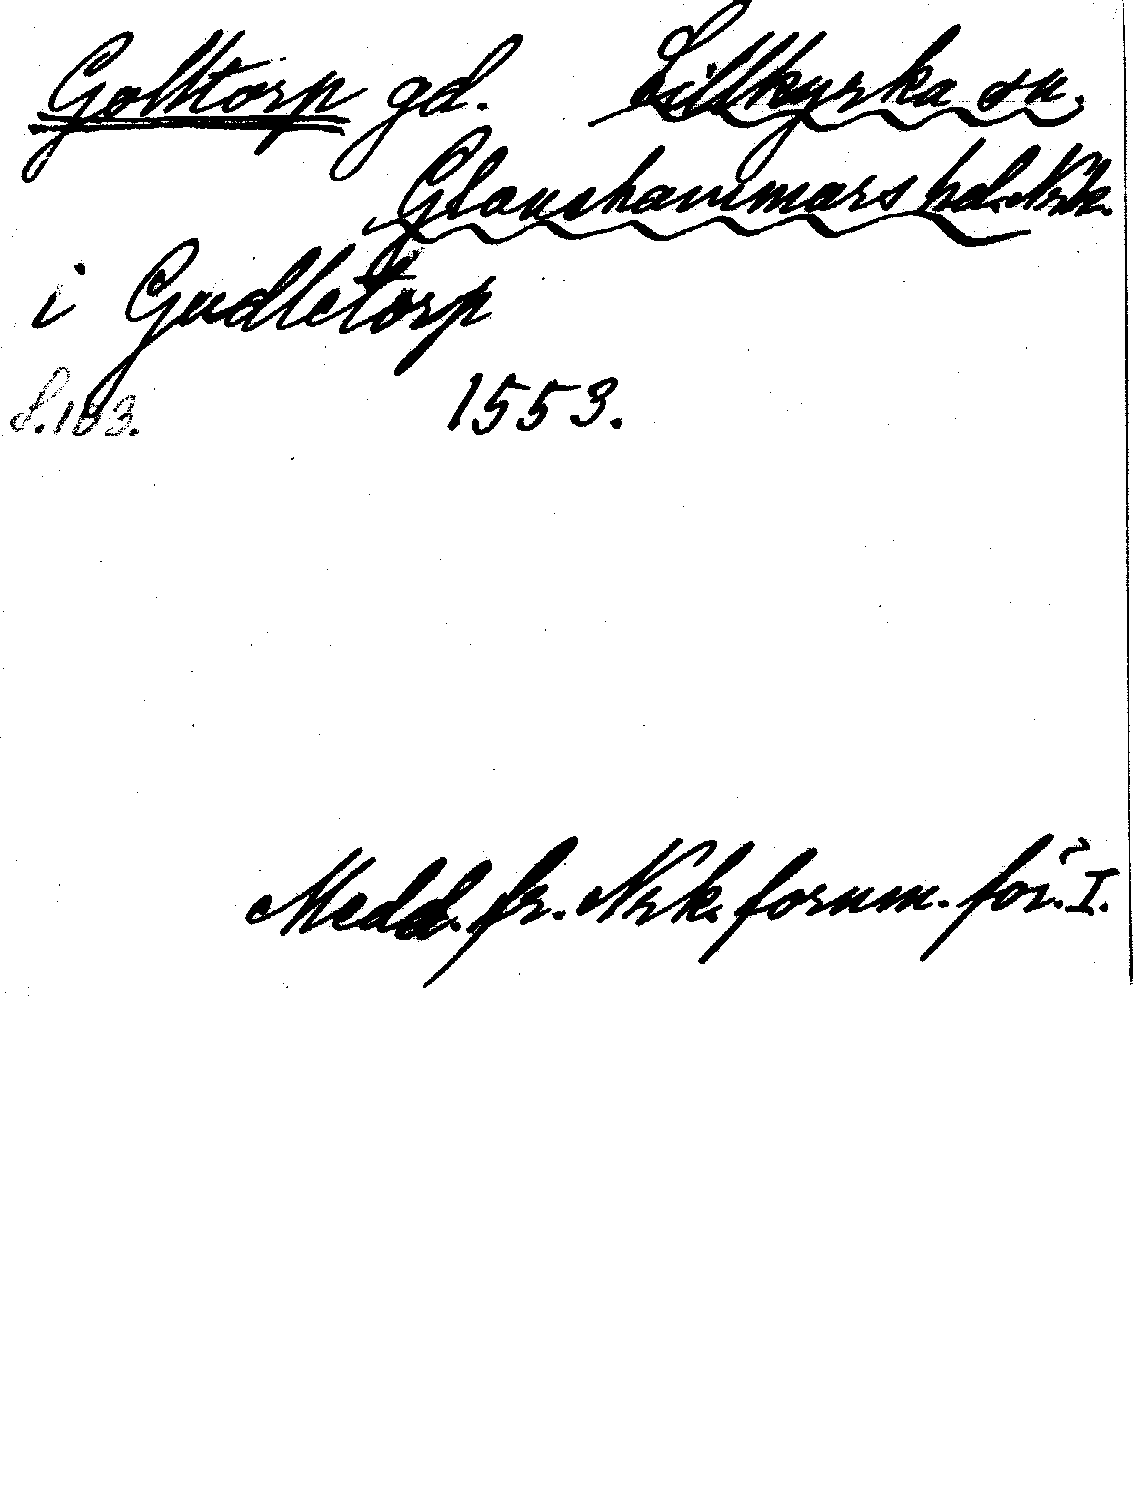 Golttorp gd. Lillkyrka sn.
Glanshammars hd. Nrk.
i Gudletorp
s. 103. 1553.
Medd. fr. Nrk. fornm. för. I.